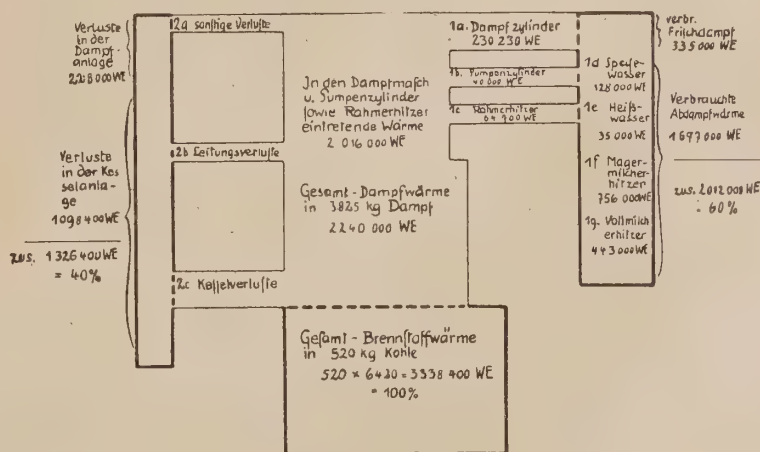 Verluste
in der
Dampf-
anlage
228000WE
Verluste
in der Kes
selanla-
ge
1098400WE
zus. 1326400WE
= 40%
2a sonstige Verluste
2b Leitungsverluste
2c Kesselverluste
In den Dampfmasch
u. Pumpenzylinder
sowie Rahmerhitzer
eintretende Wärme
2 016 000 WE
Gesamt-Dampfwärme
in 3825 kg Dampf
2240 000 WE
Gesamt-Brennstoffwärme
in 520 kg Kohle
520 × 6420 = 3338 400 WE
= 100%
1a. Dampfzylinder
230 230 WE
1b. Pumpenzylinder
40 000 WE
1c Rahmerhitzer
WE
1d Speise-
wasser
128 000 WE
1e Heiß-
wasser
35 000 WE
1f Mager-
milcher-
hitzen
756 000WE
1g. Vollmilch
erhitzer
443 000WE
verbr.
Frischdampf
335 000 WE
Verbrauchte
Abdampfwärme
1697 000 WE
zus. 2012 000 WE
= 60%